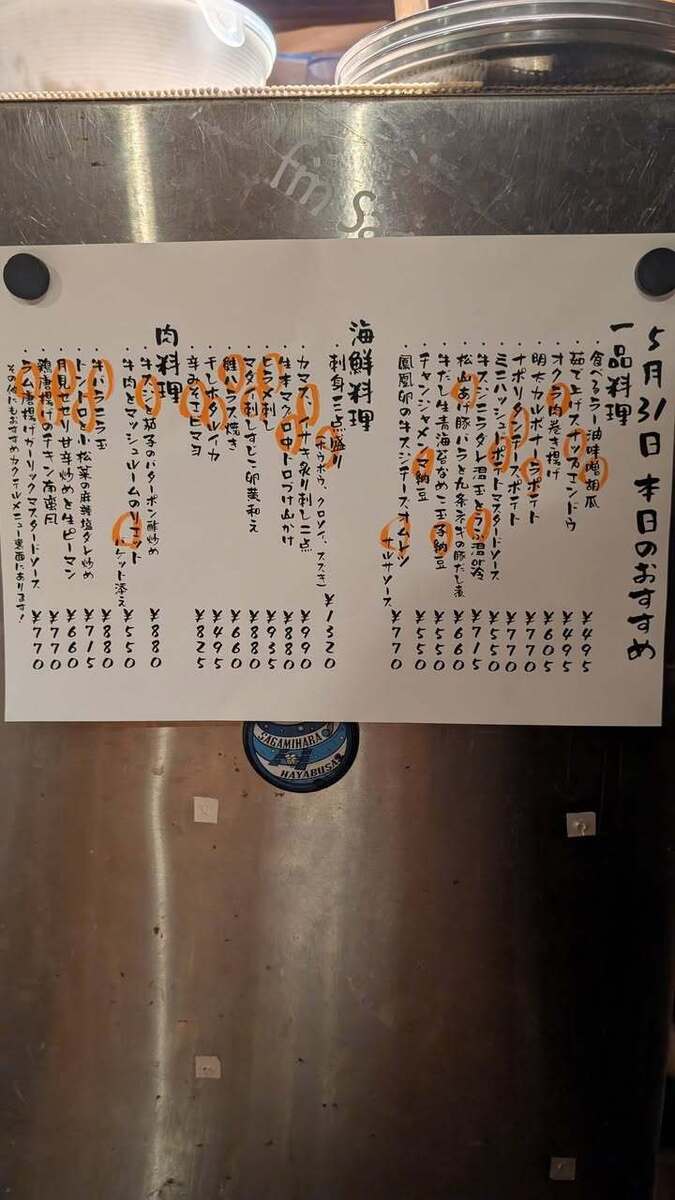 5月31日 本日のおすすめ
一品料理
・食べるラー油味噌胡瓜 ¥495
・茹で上げスナップエンドウ ¥495
・オクラ肉巻き揚げ ¥605
・明太カルボナーラポテト ¥770
・ナポリタンチーズポテト ¥770
・ミニハッシュドポテトマスタードソース ¥550
・牛スジニラダレ 温玉とうふ 温or冷 ¥715
・松山あげ豚バラと九条ネギの豚だし煮 ¥660
・牛だし生青海苔なめこ玉子納豆 ¥550
・チャンジャメンマ納豆 ¥550
・鳳凰卵の牛スジチーズオムレツ サルサソース ¥770
海鮮料理
・刺身三点盛り (ホウボウ、クロソイ、スズキ) ¥1320
・カマス、イサキ炙り刺し二点 ¥990
・生本マグロ中トロづけ山かけ ¥880
・ヒラメ刺し ¥935
・マダコ刺しすじこ卵黄和え ¥880
・鮭ハラス焼き ¥660
・干しホタルイカ ¥495
・辛みそエビマヨ ¥825
肉料理
・牛スジと茄子のバターポン酢炒め ¥880
・牛肉とマッシュルームのリエット バケット添え ¥550
・牛バラニラ玉 ¥880
・トントロと小松菜の麻辣塩ダレ炒め ¥715
・月見セセリ甘辛炒めと生ピーマン ¥660
・鶏唐揚げのチキン南蛮風 ¥770
・ラム唐揚げガーリックマスタードソース ¥770
その他にもおすすめカクテルメニュー裏面にあります!
fm Sa
SAGAMIHARA
HAYABUSA